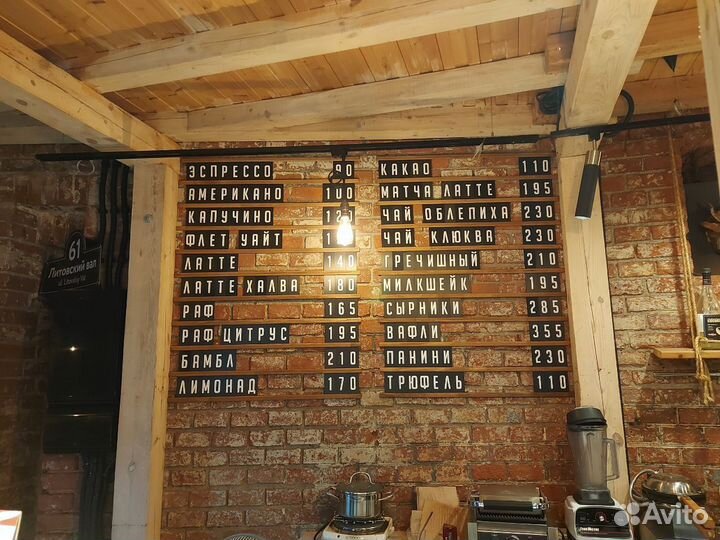 ЭСПРЕССО 90
АМЕРИКАНО 100
КАПУЧИНО
ФЛЕТ УАЙТ
ЛАТТЕ 140
ЛАТТЕ ХАЛВА 180
РАФ 165
РАФ ЦИТРУС 195
БАМБЛ 210
ЛИМОНАД 170
КАКАО 110
МАТЧА ЛАТТЕ 195
ЧАЙ ОБЛЕПИХА 230
ЧАЙ КЛЮКВА 230
ГРЕЧИШНЫЙ 210
МИЛКШЕЙК 195
СЫРНИКИ 285
ВАФЛИ 355
ПАНИНИ 230
ТРЮФЕЛЬ 110
61
Литовский вал
ul. Litovskiy Val
Avito